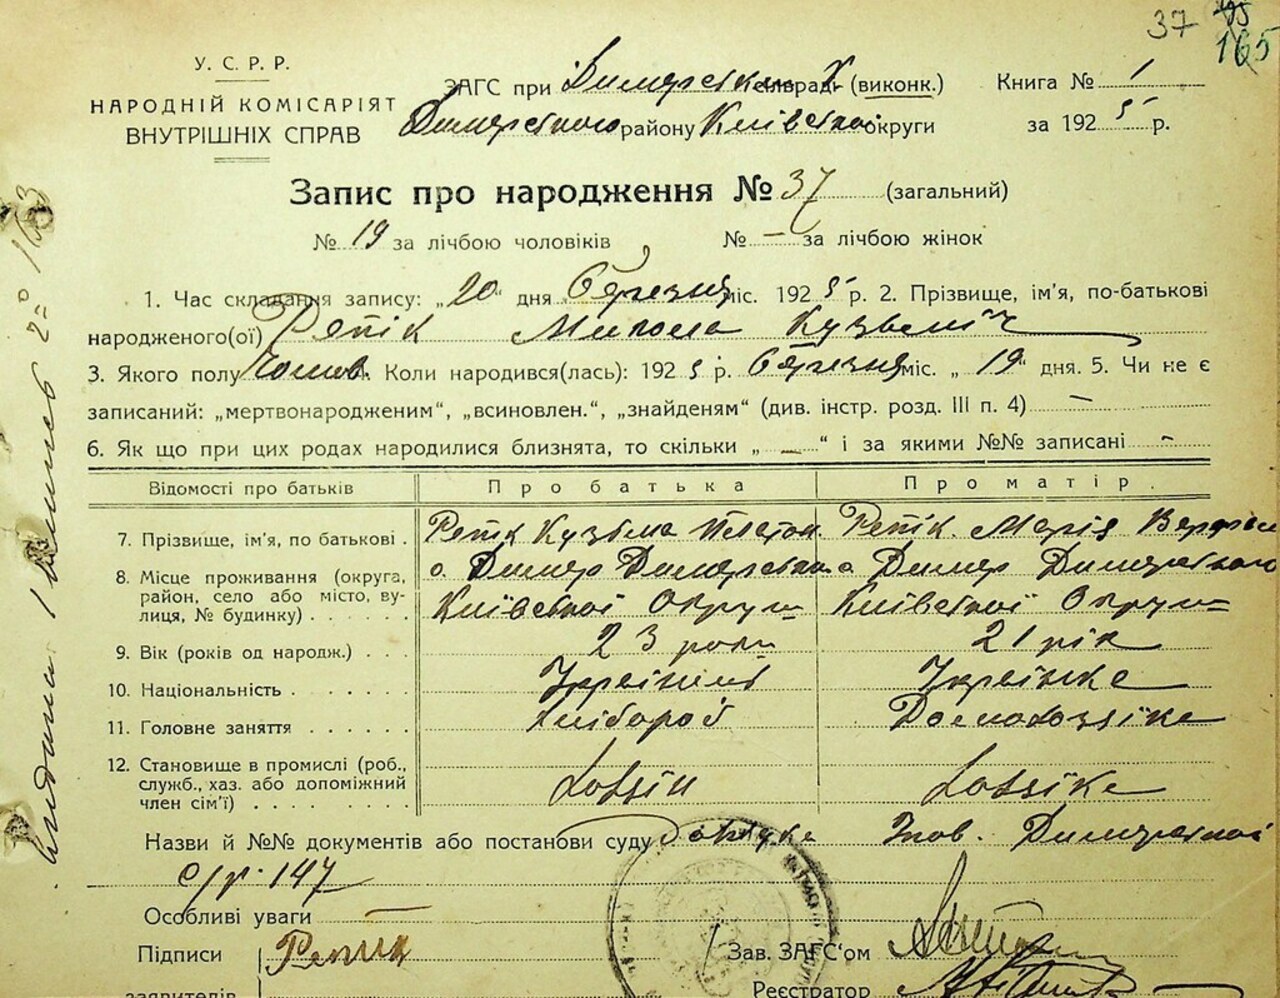 37 165
У. С. Р. Р.
НАРОДНІЙ КОМІСАРІЯТ
ВНУТРІШНІХ СПРАВ
ЗАГС при Димерськім (виконк.) Книга № 1
Димерського району Київської округи за 1925 р.
Запис про народження № 37 (загальний)
№ 19 за лічбою чоловіків № — за лічбою жінок
1. Час складання запису: „20“ дня березня міс. 1925 р. 2. Прізвище, ім’я, по-батькові
народженого(ої) Репік Микола Кузьмич
3. Якого полу чолов. Коли народився(лась): 1925 р. березня міс. „19“ дня. 5. Чи не є
записаний: „мертвонародженим“, „всиновлен.“, „знайденям“ (див. інстр. розд. III п. 4) —
6. Як що при цих родах народилися близнята, то скільки „—“ і за якими №№ записані -
Відомості про батьків Про батька Про матір.
7. Прізвище, ім’я, по батькові . Репік Кузьма Платон. Репік Марія
8. Місце проживання (округа, район, село або місто, вулиця, № будинку) . . . . . . с. Димер Димерськ с. Димер Димерського
Київської Округи Київської Округи
9. Вік (років од народж.) . . . 23 роки 21 рік
10. Національність . . . . . . Українець Українка
11. Головне заняття . . . . . . Хлібороб Домохозяйка
12. Становище в промислі (роб., служб., хаз. або допоміжний член сім’ї) . . . . . . . . .
Назви й №№ документів або постанови суду Димерської
с/р. 147
Особливі уваги —
Підписи Репик Зав. ЗАГС‘ом
заявителів Реєстратор